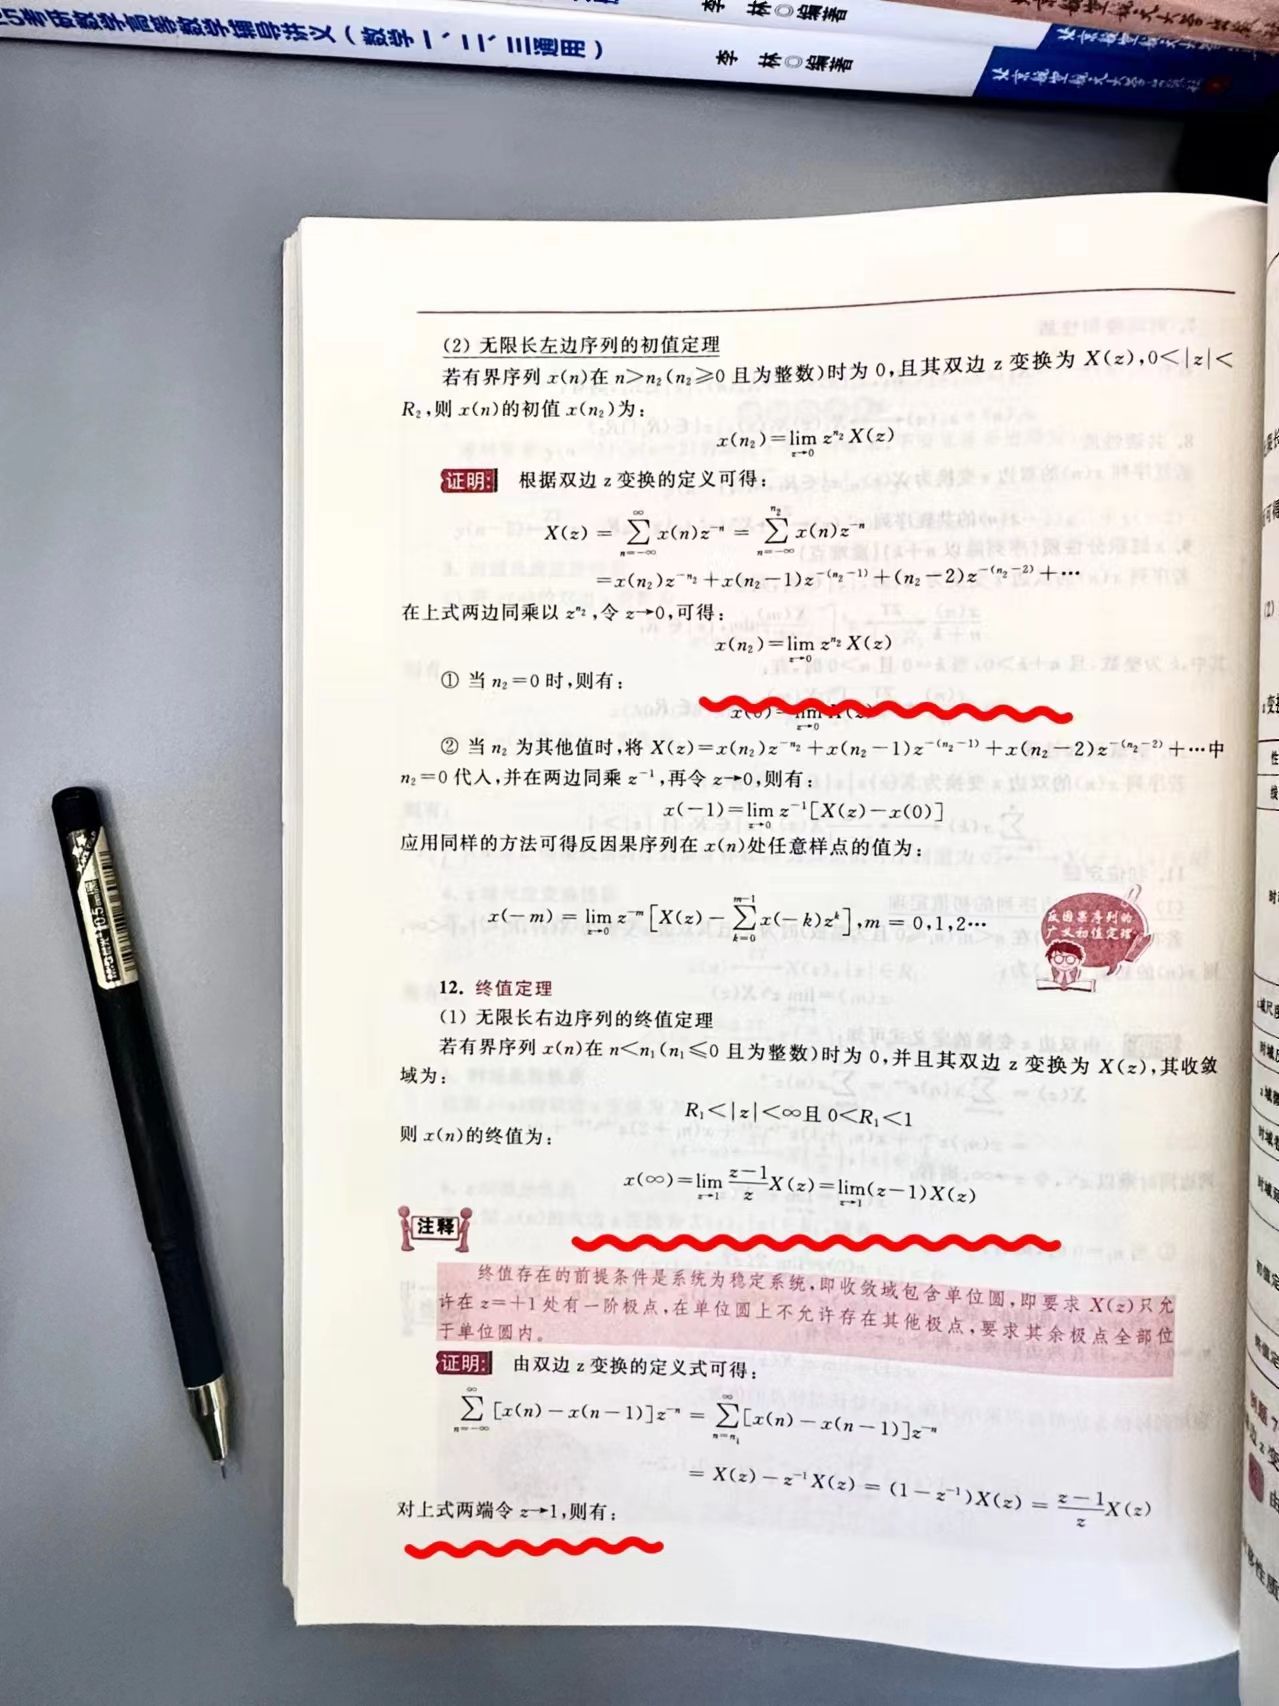 考研数学高等数学辅导讲义（数学一、二、三通用）
李 林◎编著
李 林◎编著
(2) 无限长左边序列的初值定理
若有界序列 x(n)在 n>n₂(n₂⩾0 且为整数)时为 0,且其双边 z 变换为 X(z),0<|z|<
R₂,则 x(n)的初值 x(n₂)为:
x(n₂)=lim z^{n₂} X(z)
z→0
证明: 根据双边 z 变换的定义可得:
X(z) = ∑_{n=-∞}^{∞} x(n)z^{-n} = ∑_{n=-∞}^{n₂} x(n)z^{-n}
=x(n₂)z^{-n₂}+x(n₂-1)z^{-(n₂-1)}+(n₂-2)z^{-(n₂-2)}+⋯
在上式两边同乘以 z^{n₂},令 z→0,可得:
x(n₂)=lim z^{n₂} X(z)
z→0
① 当 n₂=0 时,则有:
x(0)=lim X(z)
z→0
② 当 n₂ 为其他值时,将 X(z)=x(n₂)z^{-n₂}+x(n₂-1)z^{-(n₂-1)}+x(n₂-2)z^{-(n₂-2)}+⋯中
n₂=0 代入,并在两边同乘 z^{-1},再令 z→0,则有:
x(-1)=lim z^{-1}[X(z)-x(0)]
z→0
应用同样的方法可得反因果序列在 x(n)处任意样点的值为:
x(-m) = lim z^{-m}[X(z)-∑_{k=0}^{m-1} x(-k)z^{k}],m = 0,1,2⋯
z→0
反因果序列的
广义初值定理
12. 终值定理
(1) 无限长右边序列的终值定理
若有界序列 x(n)在 n<n₁(n₁⩽0 且为整数)时为 0,并且其双边 z 变换为 X(z),其收敛
域为:
R₁<|z|<∞且 0<R₁<1
则 x(n)的终值为:
x(∞)=lim_{z→1} \frac{z-1}{z}X(z)=lim_{z→1}(z-1)X(z)
注释
终值存在的前提条件是系统为稳定系统,即收敛域包含单位圆,即要求 X(z)只允
许在 z=+1 处有一阶极点,在单位圆上不允许存在其他极点,要求其余极点全部位
于单位圆内。
证明: 由双边 z 变换的定义式可得:
∑_{n=-∞}^{∞} [x(n)-x(n-1)]z^{-n} = ∑_{n=n₁}^{∞} [x(n)-x(n-1)]z^{-n}
= X(z)-z^{-1}X(z) = (1-z^{-1})X(z) = \frac{z-1}{z}X(z)
对上式两端令 z→1,则有: